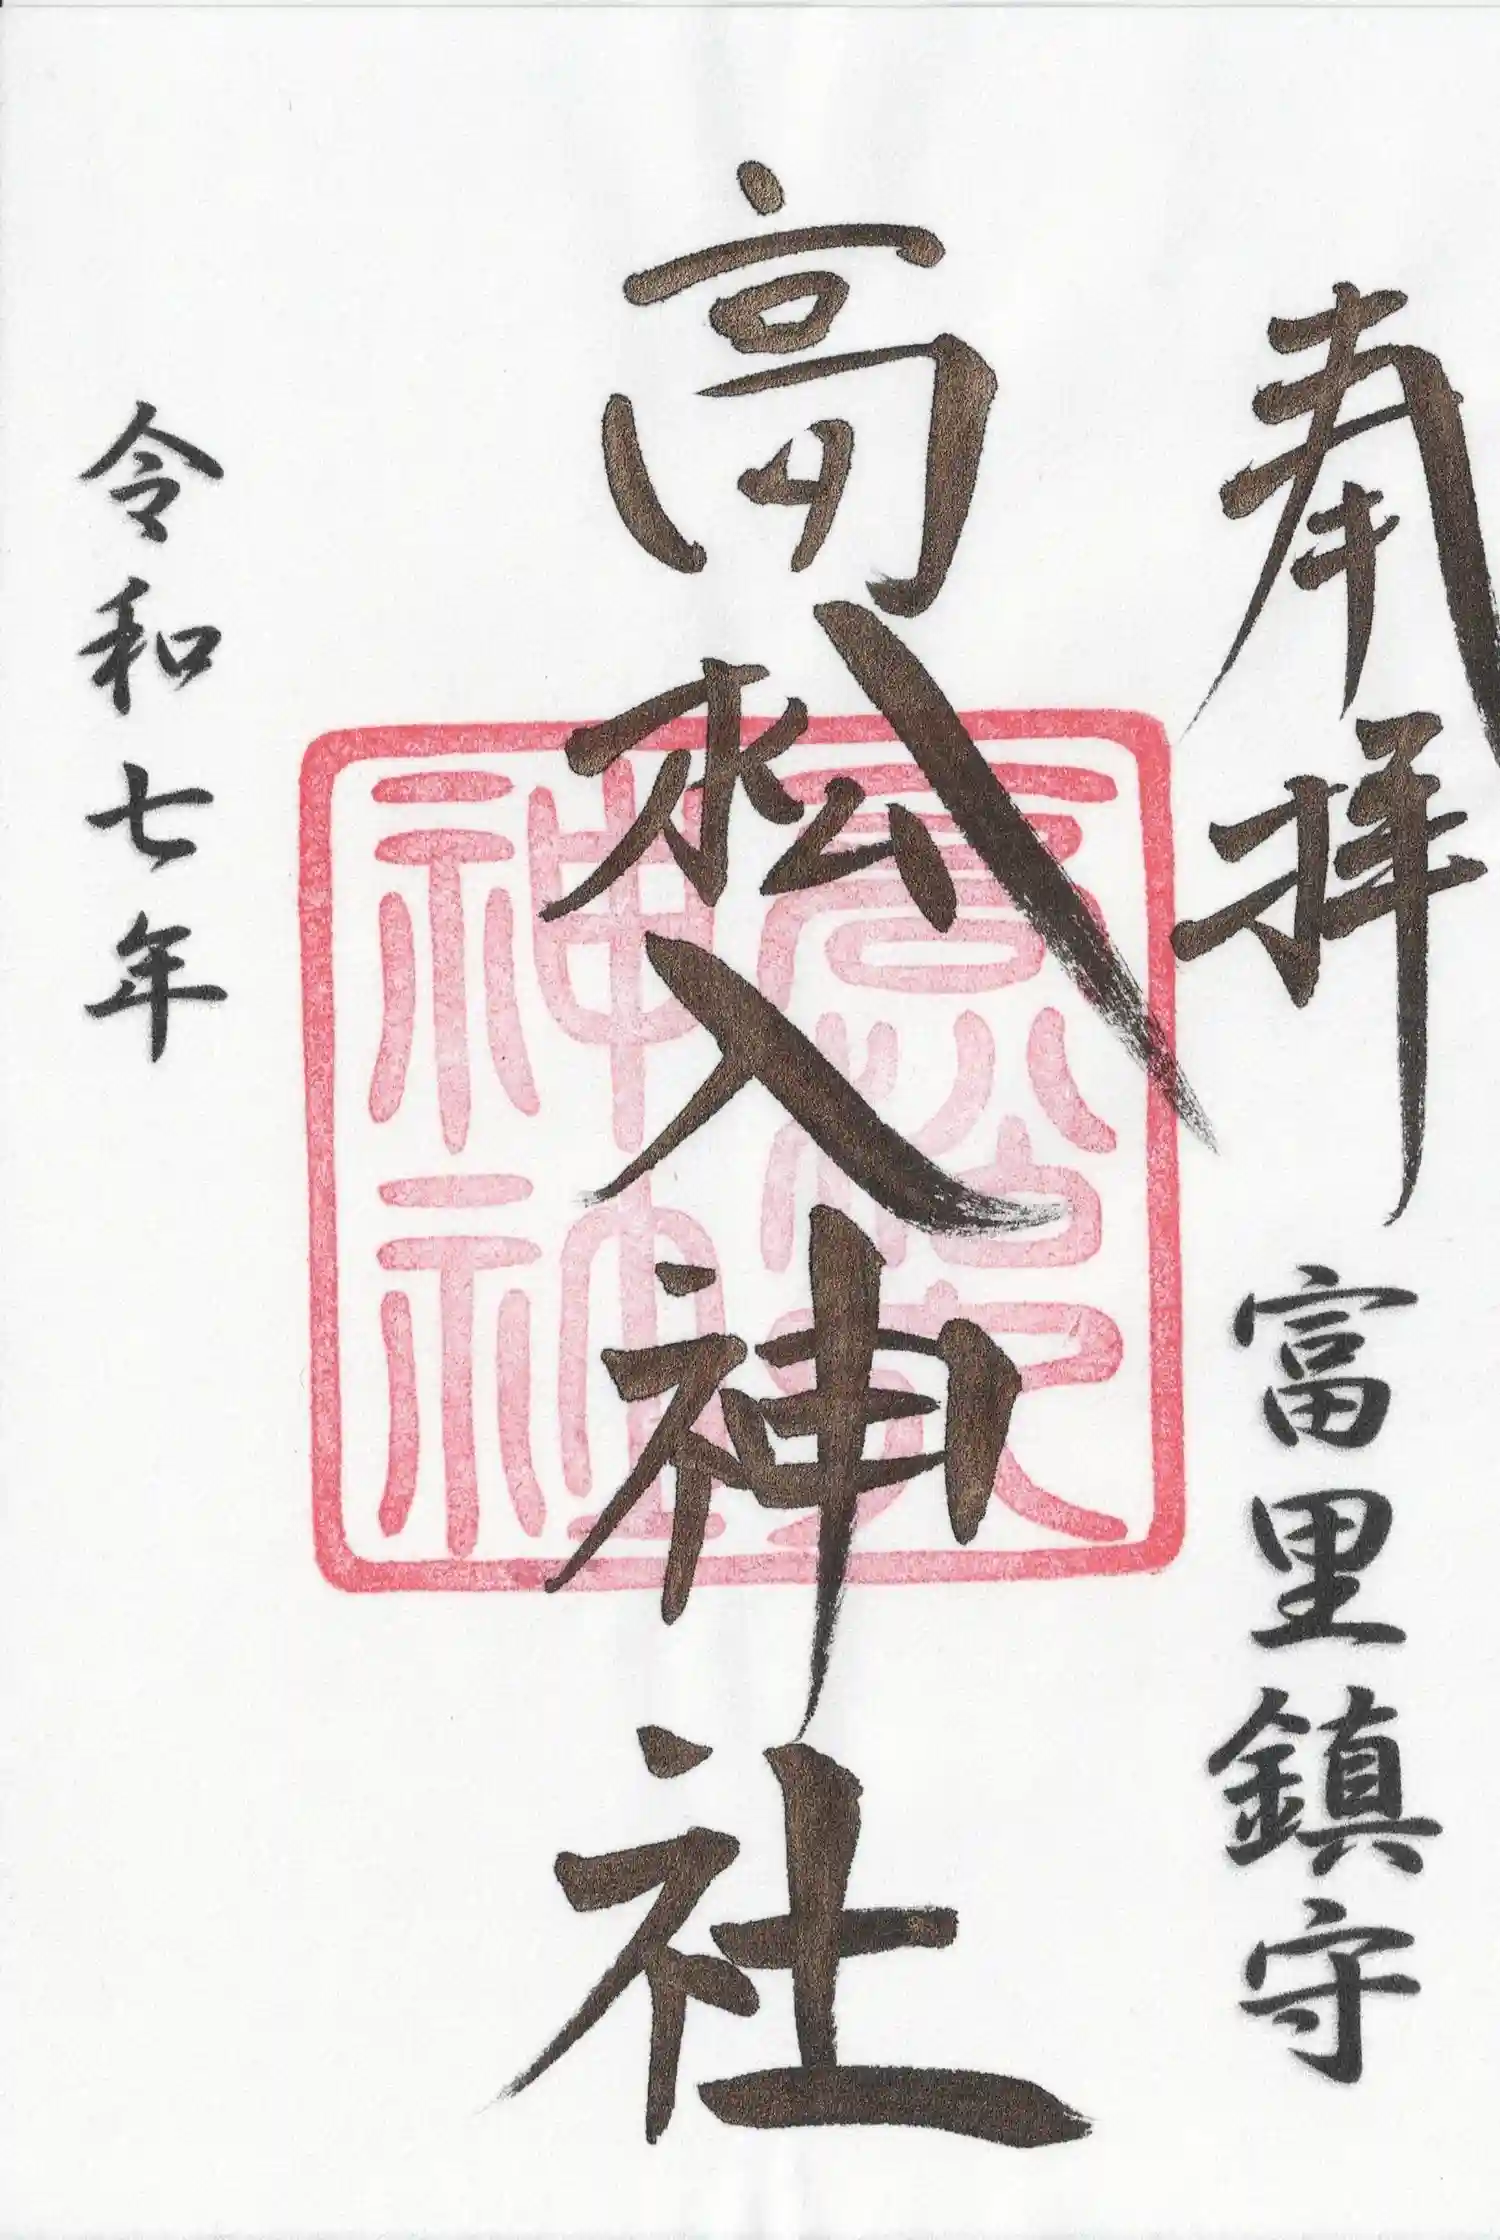 奉拝 富里鎮守
高松入神社
高松入
神社
令和七年